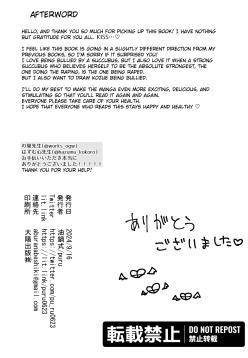 AFTERWORD
HELLO, AND THANK YOU SO MUCH FOR PICKING UP THIS BOOK! I HAVE NOTHING
BUT GRATITUDE FOR YOU ALL. KISS...♡
I FEEL LIKE THIS BOOK IS GOING IN A SLIGHTLY DIFFERENT DIRECTION FROM MY
PREVIOUS BOOKS, SO I'M SORRY IF IT SURPRISED YOU!
I LOVE BEING BULLIED BY A SUCCUBUS, BUT I ALSO LOVE IT WHEN A STRONG
SUCCUBUS WHO BELIEVES HERSELF TO BE THE ABSOLUTE STRONGEST, THE
ONE DOING THE RAPING, IS THE ONE BEING RAPED.
BUT I ALSO WANT TO DRAW KOJIE BEING BULLIED.
I'LL DO MY BEST TO MAKE THE MANGA EVEN MORE EXCITING, DELICIOUS, AND
STIMULATING SO THAT YOU'LL READ IT AGAIN AND AGAIN.
EVERYONE PLEASE TAKE CARE OF YOUR HEALTH.
I HOPE THAT EVERYONE WHO READS THIS STAYS HAPPY AND HEALTHY ♡
お手伝いいただき本当に
ありがとうございました!!!!!
THANK YOU FOR YOUR HELP!
ありがとう
ございました♡
発行日 2024/9/16
発行者 油鯖弐/puru
Twitter https://twitter.com/pu_ru0623
lit.link https://lit.link/puru0623
連絡先 aburasabashiki@gmail.com
印刷所 大陽出版㈱
転載禁止
DO NOT REPOST
禁止转载